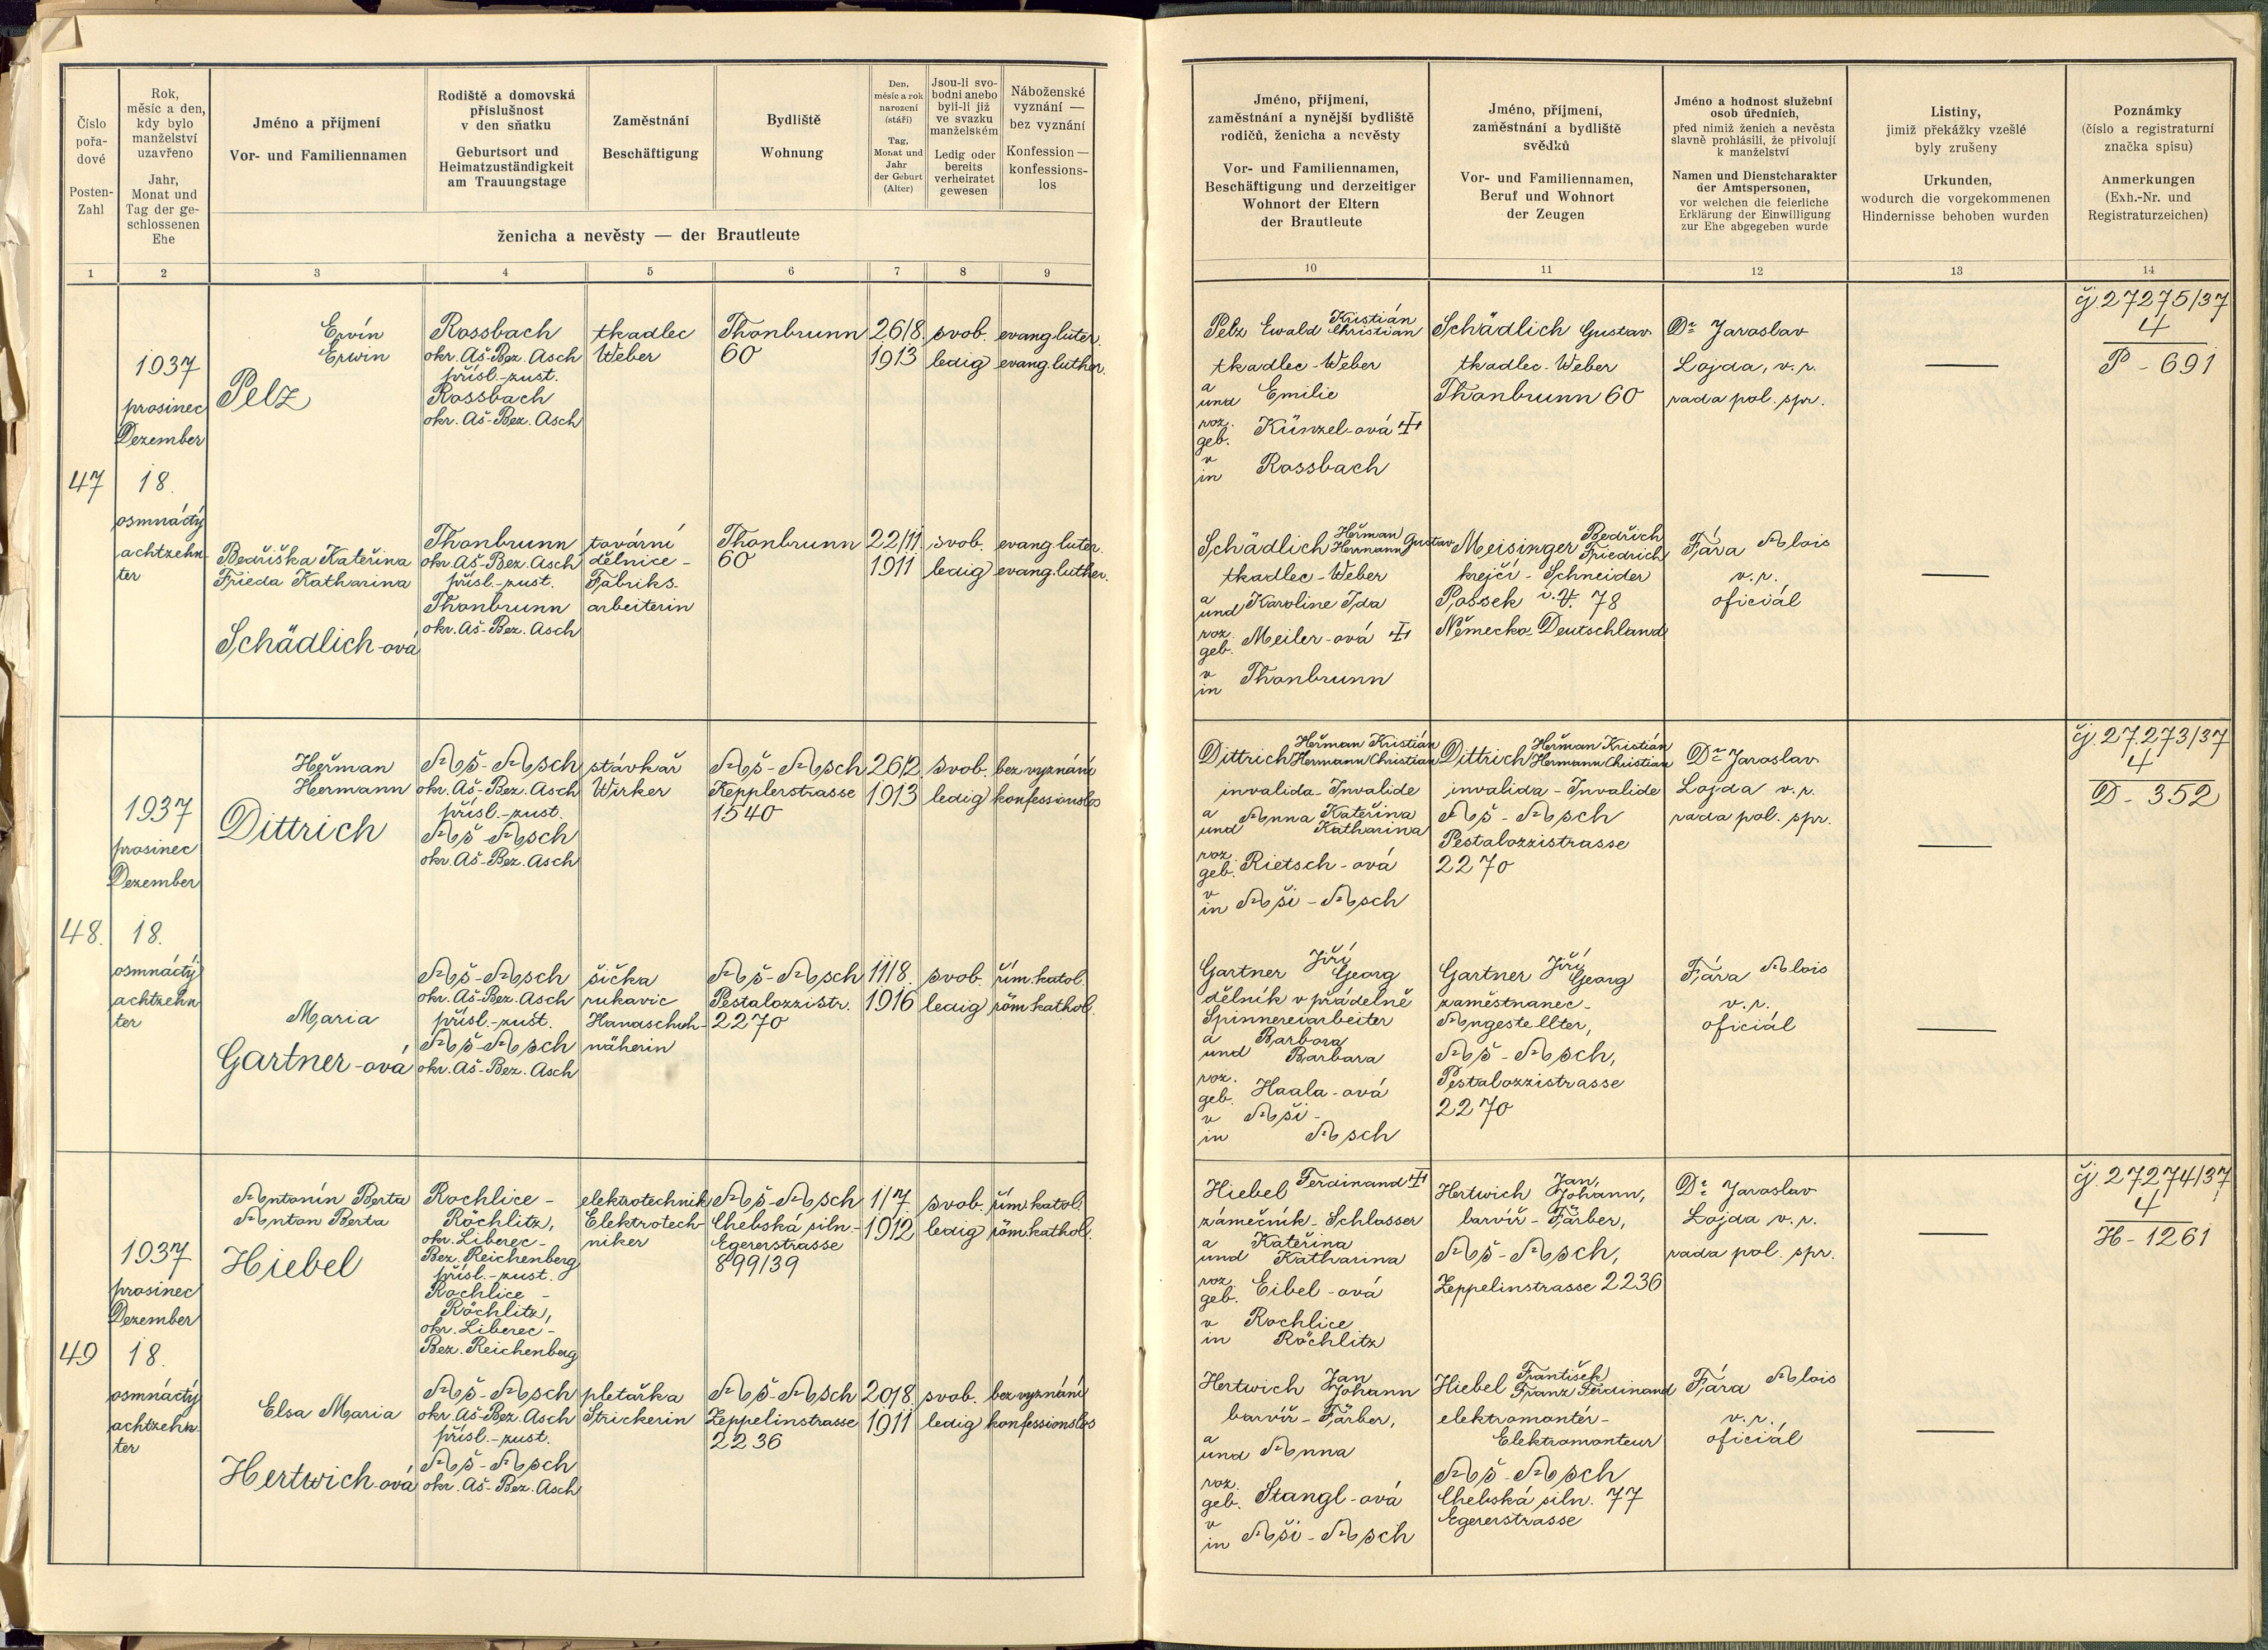 Číslo
pořa-
dové
Posten-
Zahl
Rok,
měsíc a den,
kdy bylo
manželství
uzavřeno
Jahr,
Monat und
Tag der ge-
schlossenen
Ehe
Jméno a příjmení
Vor- und Familiennamen
Rodiště a domovská
příslušnost
v den sňatku
Geburtsort und
Heimatzuständigkeit
am Trauungstage
Zaměstnání
Beschäftigung
Bydliště
Wohnung
Den,
měsíc a rok
narození
(stáří)
Tag,
Monat und
Jahr
der Geburt
(Alter)
Jsou-li svo-
bodni anebo
byli-li již
ve svazku
manželském
Ledig oder
bereits
verheiratet
gewesen
Náboženské
vyznání —
bez vyznání
Konfession —
konfessions-
los
ženicha a nevěsty — der Brautleute
1 2 3 4 5 6 7 8 9
47
1937
prosinec
Dezember
18.
osmnáctý
achtzehn-
ter
Ervín
Erwin
Pelz
Rossbach
okr. Aš-Bez. Asch
přísl.-zust.
Rossbach
okr. Aš-Bez. Asch
tkadlec
Weber
Thonbrunn
60
26/8.
1913
svob.
ledig
evang.luter.
evang.luther.
Bedřiška Kateřina
Frieda Katharina
Schädlich-ová
Thonbrunn
okr. Aš-Bez. Asch
přísl.-zust.
Thonbrunn
okr. Aš-Bez. Asch
tovární
dělnice-
Fabriks-
arbeiterin
Thonbrunn
60
22/11
1911
svob.
ledig
evang.luter.
evang.luther.
48.
1937
prosinec
Dezember
18.
osmnáctý
achtzehn
ter
Heřman
Hermann
Dittrich
Aš-Asch
okr. Aš-Bez. Asch
přísl.-zust.
Aš-Asch
okr. Aš-Bez. Asch
stávkař
Wirker
Aš-Asch
Kepplerstrasse
1540
26/2.
1913
svob.
ledig
bez vyznání
konfessionslos
Maria
Gartner-ová
Aš-Asch
okr. Aš-Bez. Asch
přísl.-zust.
Aš-Asch
okr. Aš-Bez. Asch
šička
rukavic
Handschuh-
näherin
Aš-Asch
Pestalozzistr.
2270
11/8.
1916
svob.
ledig
řím.katol.
röm.kathol.
49
1937
prosinec
Dezember
18.
osmnáctý
achtzehn-
ter
Antonín Berta
Anton Berta
Hiebel
Rochlice-
Röchlitz,
okr. Liberec-
Bez. Reichenberg
přísl.-zust.
Rochlice-
Röchlitz,
okr. Liberec-
Bez. Reichenberg
elektrotechnik
Elektrotech-
niker
Aš-Asch
Chebská siln.-
Egererstrasse
899/39
1/7.
1912
svob.
ledig
řím.katol.
röm.kathol.
Elsa Maria
Hertwich-ová
Aš-Asch
okr. Aš-Bez. Asch
přísl.-zust.
Aš-Asch
okr. Aš-Bez. Asch
pletařka
Strickerin
Aš-Asch
Zeppelinstrasse
2236
20/8.
1911
svob.
ledig
bez vyznání
konfessionslos
Jméno, příjmení,
zaměstnání a nynější bydliště
rodičů, ženicha a nevěsty
Vor- und Familiennamen,
Beschäftigung und derzeitiger
Wohnort der Eltern
der Brautleute
Jméno, příjmení,
zaměstnání a bydliště
svědků
Vor- und Familiennamen,
Beruf und Wohnort
der Zeugen
Jméno a hodnost služební
osob úředních,
před nimiž ženich a nevěsta
slavně prohlásili, že přivolují
k manželství
Namen und Dienstcharakter
der Amtspersonen,
vor welchen die feierliche
Erklärung der Einwilligung
zur Ehe abgegeben wurde
Listiny,
jimiž překážky vzešlé
byly zrušeny
Urkunden,
wodurch die vorgekommenen
Hindernisse behoben wurden
Poznámky
(číslo a registraturní
značka spisu)
Anmerkungen
(Exh.-Nr. und
Registraturzeichen)
10 11 12 13 14
Pelz Ewald Kristián
Christian
tkadlec-Weber
a
und Emilie
roz.
geb. Künzel-ová ‡
v
in Rossbach
Schädlich Gustav
tkadlec-Weber
Thonbrunn 60
Dr Jaroslav
Lojda, v.r.
rada pol. spr.
—
čj. 27275/37
4
P - 691
Schädlich Heřman
Hermann Gustav
tkadlec-Weber
a
und Karoline Ida
roz.
geb. Meiler-ová ‡
v
in Thonbrunn
Meisinger Bedřich
Friedrich
krejčí-Schneider
Possek i.V. 78
Německo-Deutschland
Fára Alois
v.r.
oficiál
—
Dittrich Heřman Kristián
Hermann Christian
invalida-Invalide
a
und Anna Kateřina
Katharina
roz.
geb. Rietsch-ová
v
in Aši-Asch
Dittrich Heřman Kristián
Hermann Christian
invalida-Invalide
Aš-Asch
Pestalozzistrasse
2270
Dr Jaroslav
Lojda v.r.
rada pol. spr.
—
čj. 27.273/37
4
D - 352
Gartner Jiří
Georg
dělník v přádelně
Spinnereiarbeiter
a Barbora
und Barbara
roz.
geb. Haala-ová
v Aši-
in Asch
Gartner Jiří
Georg
zaměstnanec-
Angestellter,
Aš-Asch,
Pestalozzistrasse
2270
Fára Alois
v.r.
oficiál
—
Hiebel Ferdinand ‡
zámečník-Schlosser
a Kateřina
und Katharina
roz.
geb. Eibel-ová
v Rochlice
in Röchlitz
Hertwich Jan,
Johann,
barvíř-Färber,
Aš-Asch,
Zeppelinstrasse 2236
Dr. Jaroslav
Lojda v.r.
rada pol. spr.
—
čj. 27274/37
4
H - 1261
Hertwich Jan
Johann
barvíř-Färber,
a
und Anna
roz.
geb. Stangl-ová
v
in Aši-Asch
Hiebel František
Franz Ferdinand
elektromontér-
Elektromonteur
Aš-Asch
Chebská siln. 77
Egererstrasse
Fára Alois
v.r.
oficiál
—